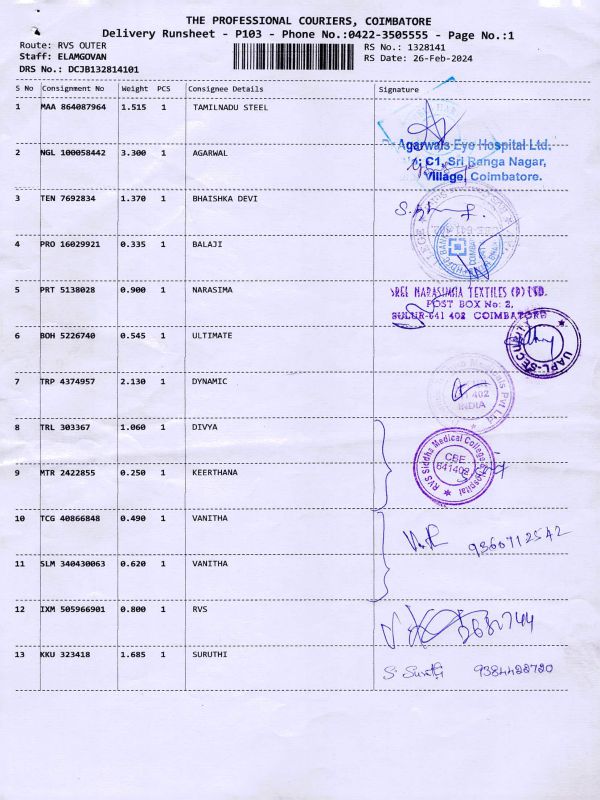 THE PROFESSIONAL COURIERS, COIMBATORE
Delivery Runsheet - P103 - Phone No.:0422-3505555 - Page No.:1
Route: RVS OUTER RS No.: 1328141
Staff: ELAMGOVAN RS Date: 26-Feb-2024
DRS No.: DCJB132814101
S No Consignment No Weight PCS Consignee Details Signature
1 MAA 864087964 1.515 1 TAMILNADU STEEL
Agarwals Eye Hospital Ltd.
2 NGL 100058442 3.300 1 AGARWAL
C1, Sri Ranga Nagar,
Village, Coimbatore.
3 TEN 7692834 1.370 1 BHAISHKA DEVI
4 PRO 16029921 0.335 1 BALAJI
5 PRT 5138028 0.900 1 NARASIMA
SREE NARASIMHA TEXTILES (P) LTD.
POST BOX No: 2,
SULUR-641 402 COIMBATORE
6 BOH 5226740 0.545 1 ULTIMATE
UAPL-SECURITY
7 TRP 4374957 2.130 1 DYNAMIC
402
INDIA
8 TRL 303367 1.060 1 DIVYA
RVS Siddha Medical College
Hospital
CBE
641402
9 MTR 2422855 0.250 1 KEERTHANA
10 TCG 40866848 0.490 1 VANITHA
9360712542
11 SLM 340430063 0.620 1 VANITHA
12 IXM 505966901 0.800 1 RVS
13 KKU 323418 1.685 1 SURUTHI
S. Suruthi 9384428720